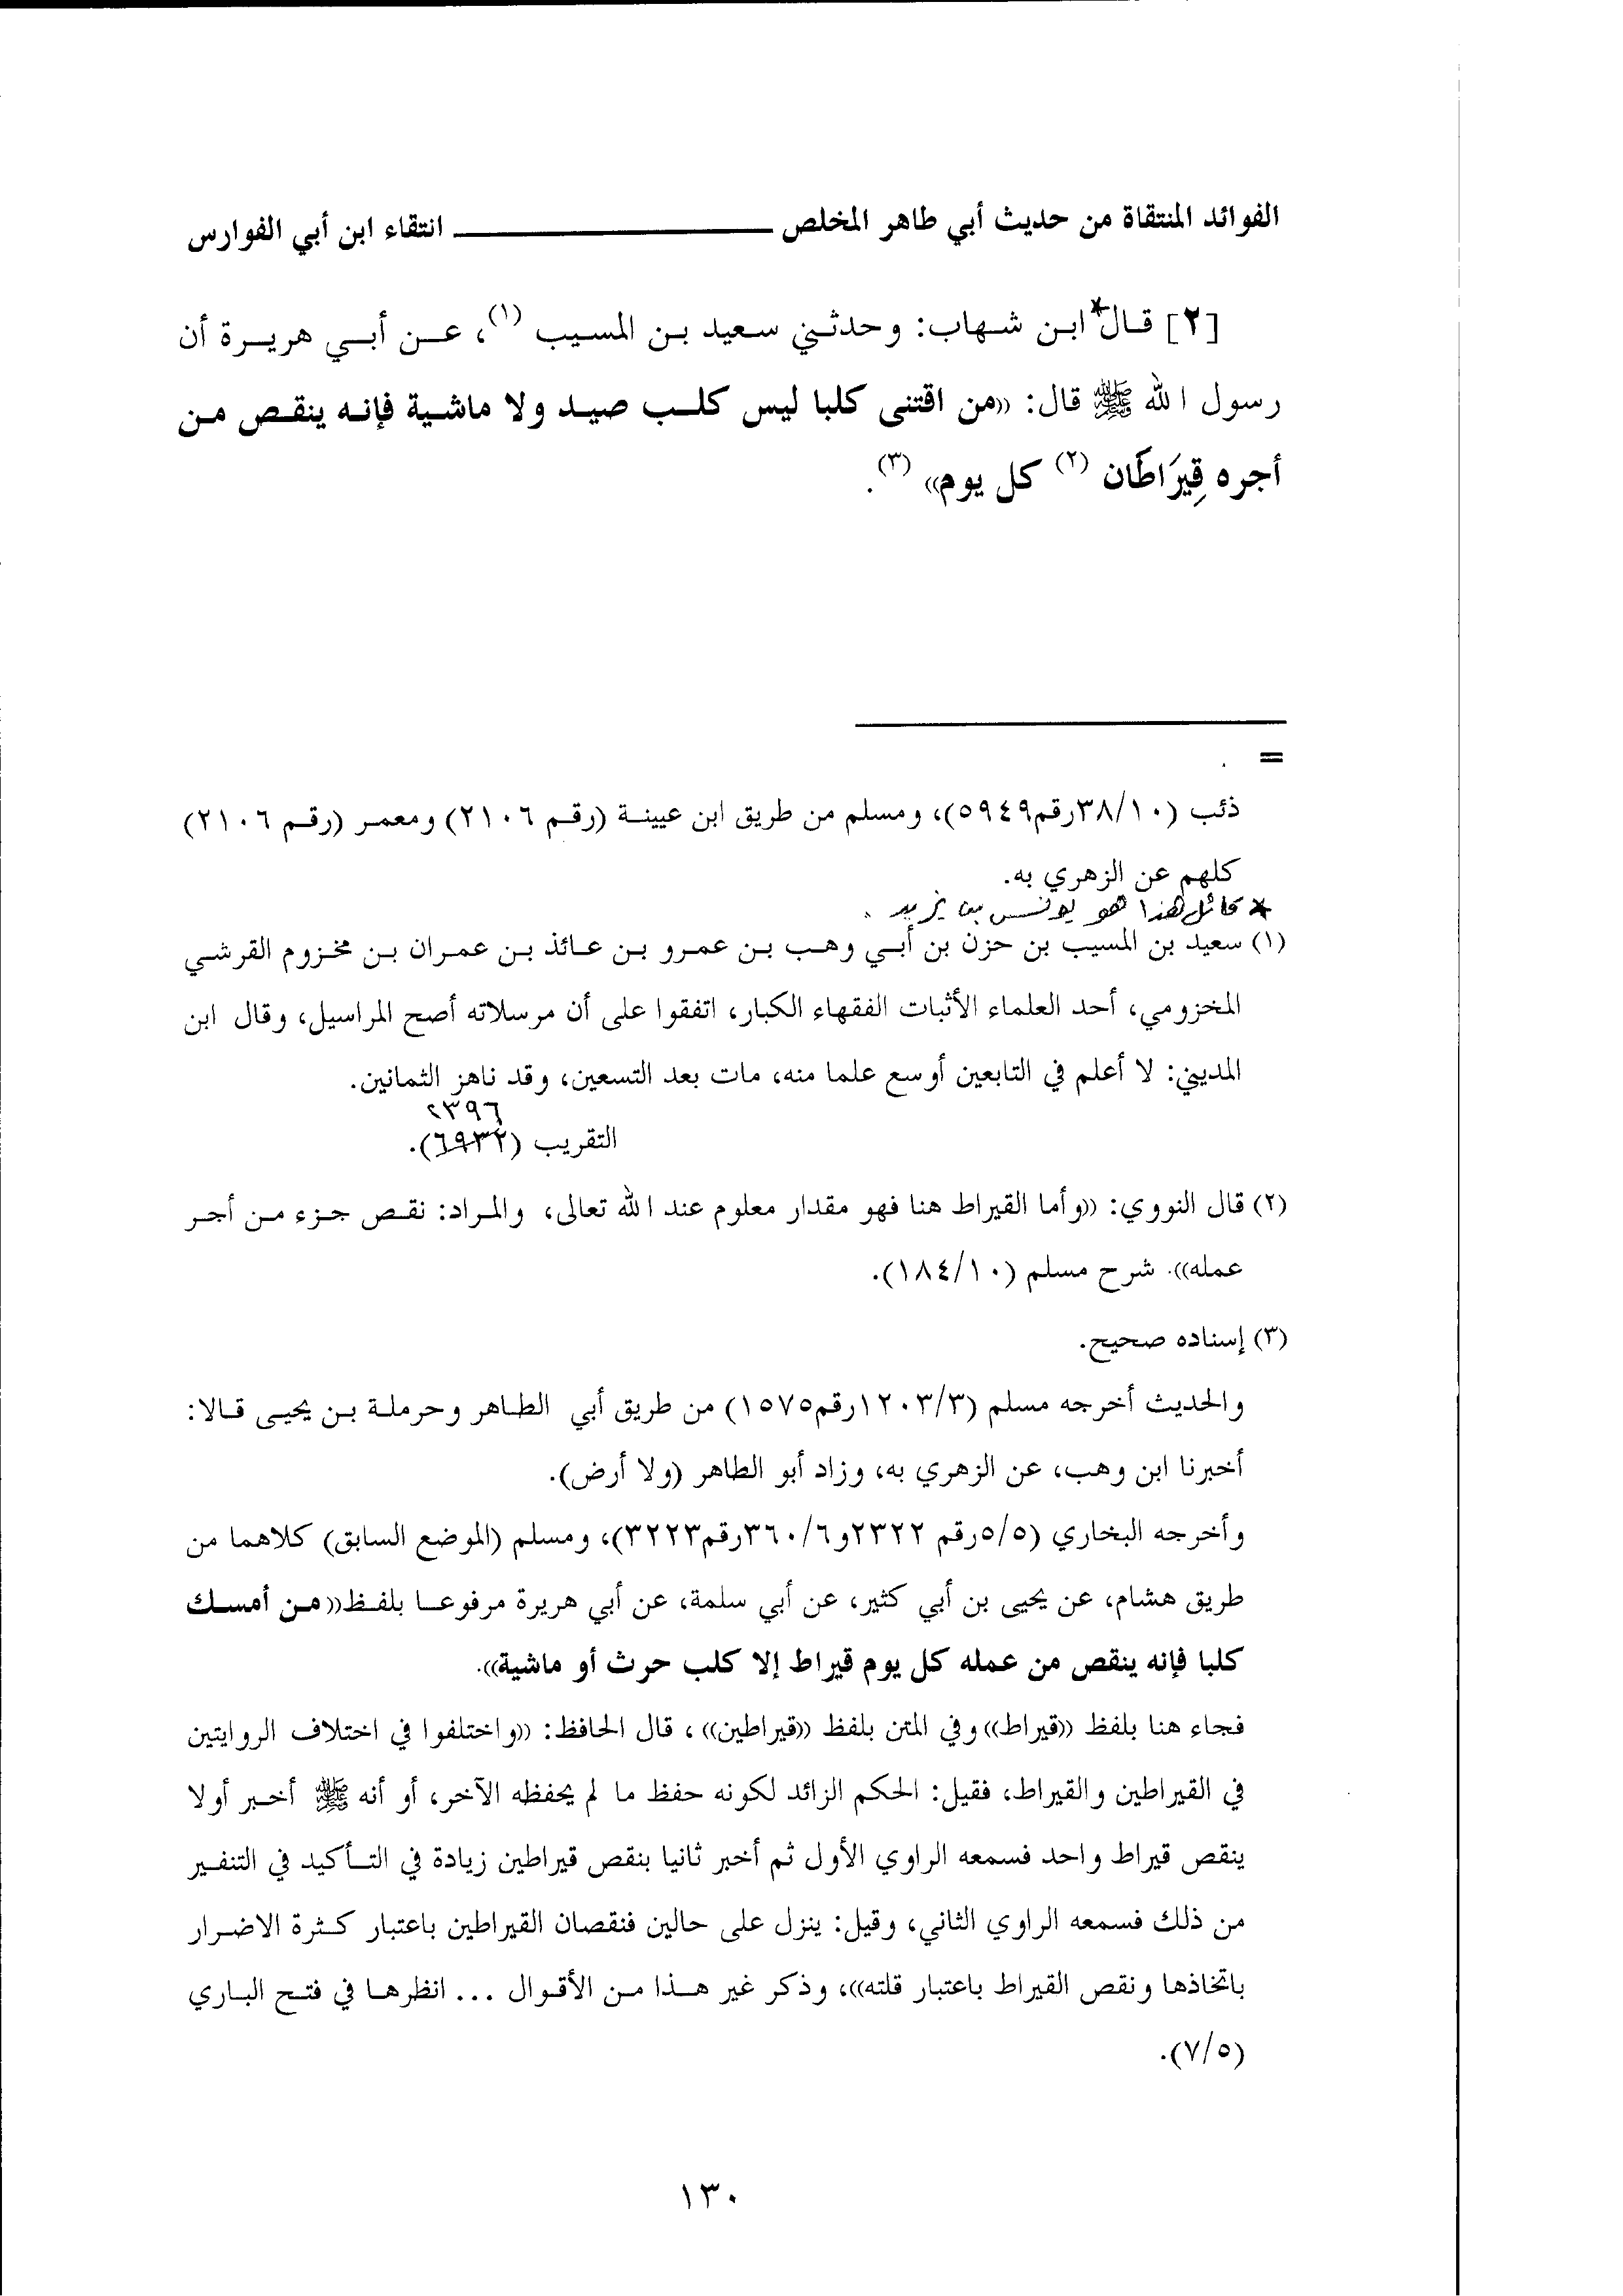 الفوائد المنتقاة من حديث أبي طاهر المخلص ــــــــــــــــ انتقاء ابن أبي الفوارس
[٢] قال* ابن شهاب: وحدثني سعيد بن المسيب (١)، عن أبي هريرة أن
رسول الله ﷺ قال: ((من اقتنى كلبا ليس كلب صيد ولا ماشية فإنه ينقص من
أجره قِيرَاطَان (٢) كل يوم)) (٣).
=
ذئب (٣٨/١٠رقم٥٩٤٩)، ومسلم من طريق ابن عيينة (رقم ٢١٠٦) ومعمر (رقم ٢١٠٦)
كلهم عن الزهري به.
* قائل هذا هو يونس بن يزيد .
(١) سعيد بن المسيب بن حزن بن أبي وهب بن عمرو بن عائذ بن عمران بن مخزوم القرشي
المخزومي، أحد العلماء الأثبات الفقهاء الكبار، اتفقوا على أن مرسلاته أصح المراسيل، وقال ابن
المديني: لا أعلم في التابعين أوسع علما منه، مات بعد التسعين، وقد ناهز الثمانين.
٢٣٩٦
التقريب (٦٩٣٢).
(٢) قال النووي: ((وأما القيراط هنا فهو مقدار معلوم عند الله تعالى، والمراد: نقص جزء من أجر
عمله)). شرح مسلم (١٨٤/١٠).
(٣) إسناده صحيح.
والحديث أخرجه مسلم (١٢٠٣/٣رقم١٥٧٥) من طريق أبي الطاهر وحرملة بن يحيى قالا:
أخبرنا ابن وهب، عن الزهري به، وزاد أبو الطاهر (ولا أرض).
وأخرجه البخاري (٥/٥رقم ٢٣٢٢و٣٦٠/٦رقم٣٢٢٣)، ومسلم (الموضع السابق) كلاهما من
طريق هشام، عن يحيى بن أبي كثير، عن أبي سلمة، عن أبي هريرة مرفوعا بلفظ((من أمسك
كلبا فإنه ينقص من عمله كل يوم قيراط إلا كلب حرث أو ماشية)).
فجاء هنا بلفظ ((قيراط)) وفي المتن بلفظ ((قيراطين))، قال الحافظ: ((واختلفوا في اختلاف الروايتين
في القيراطين والقيراط، فقيل: الحكم الزائد لكونه حفظ ما لم يحفظه الآخر، أو أنه ﷺ أخبر أولا
ينقص قيراط واحد فسمعه الراوي الأول ثم أخبر ثانيا بنقص قيراطين زيادة في التأكيد في التنفير
من ذلك فسمعه الراوي الثاني، وقيل: ينزل على حالين فنقصان القيراطين باعتبار كثرة الاضرار
باتخاذها ونقص القيراط باعتبار قلته))، وذكر غير هذا من الأقوال ... انظرها في فتح الباري
(٧/٥).
١٣٠